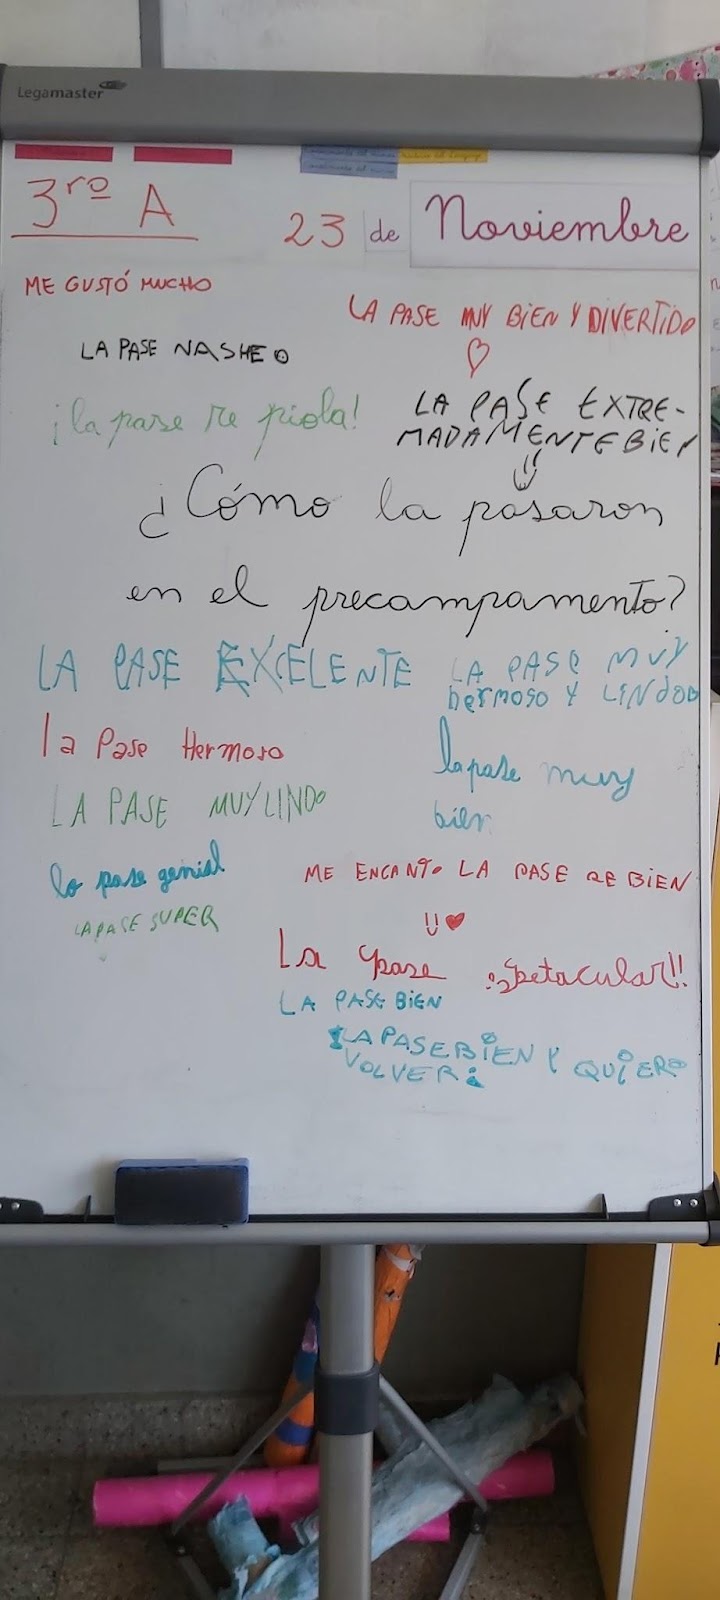 Legamaster
3ro A
23 de Noviembre
ME GUSTÓ MUCHO
LA PASE MUY BIEN Y DIVERTIDO
LA PASE NASHEO
¡la pase re piola!
LA PASE EXTRE-
MADAMENTE BIEN
¿Cómo la pasaron
en el precampamento?
LA PASE EXCELENTE
LA PASE MUY
hermoso Y LINDOO
la Pase Hermoso
la pase muy
bien
LA PASE MUY LINDO
lo pase genial
ME ENCANTO LA PASE RE BIEN
LA PASE SUPER
La pase espetacular!!
LA PASE BIEN
¡LA PASE BIEN Y QUIERO
VOLVER!